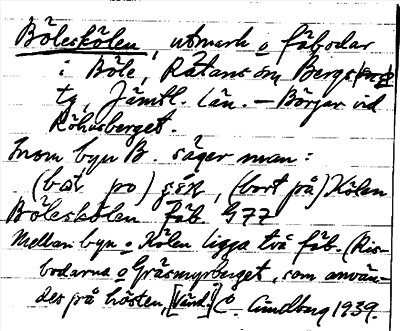 Böleskölen, utmark o fäbodar
i Böle, Rätans sn, Bergs
tg, Jämtl. län. – Börjar vid
Röhusberget.
Inom byn B. säger man:
(bot po) , (bort på) Kölen
Böleskölen fäb. 977
Mellan byn o Kölen ligga två fäb. (Ris-
bodarna o Gräsmyrberget, som använ-
des på hösten, [Vänd.] C. Lundberg 1939.